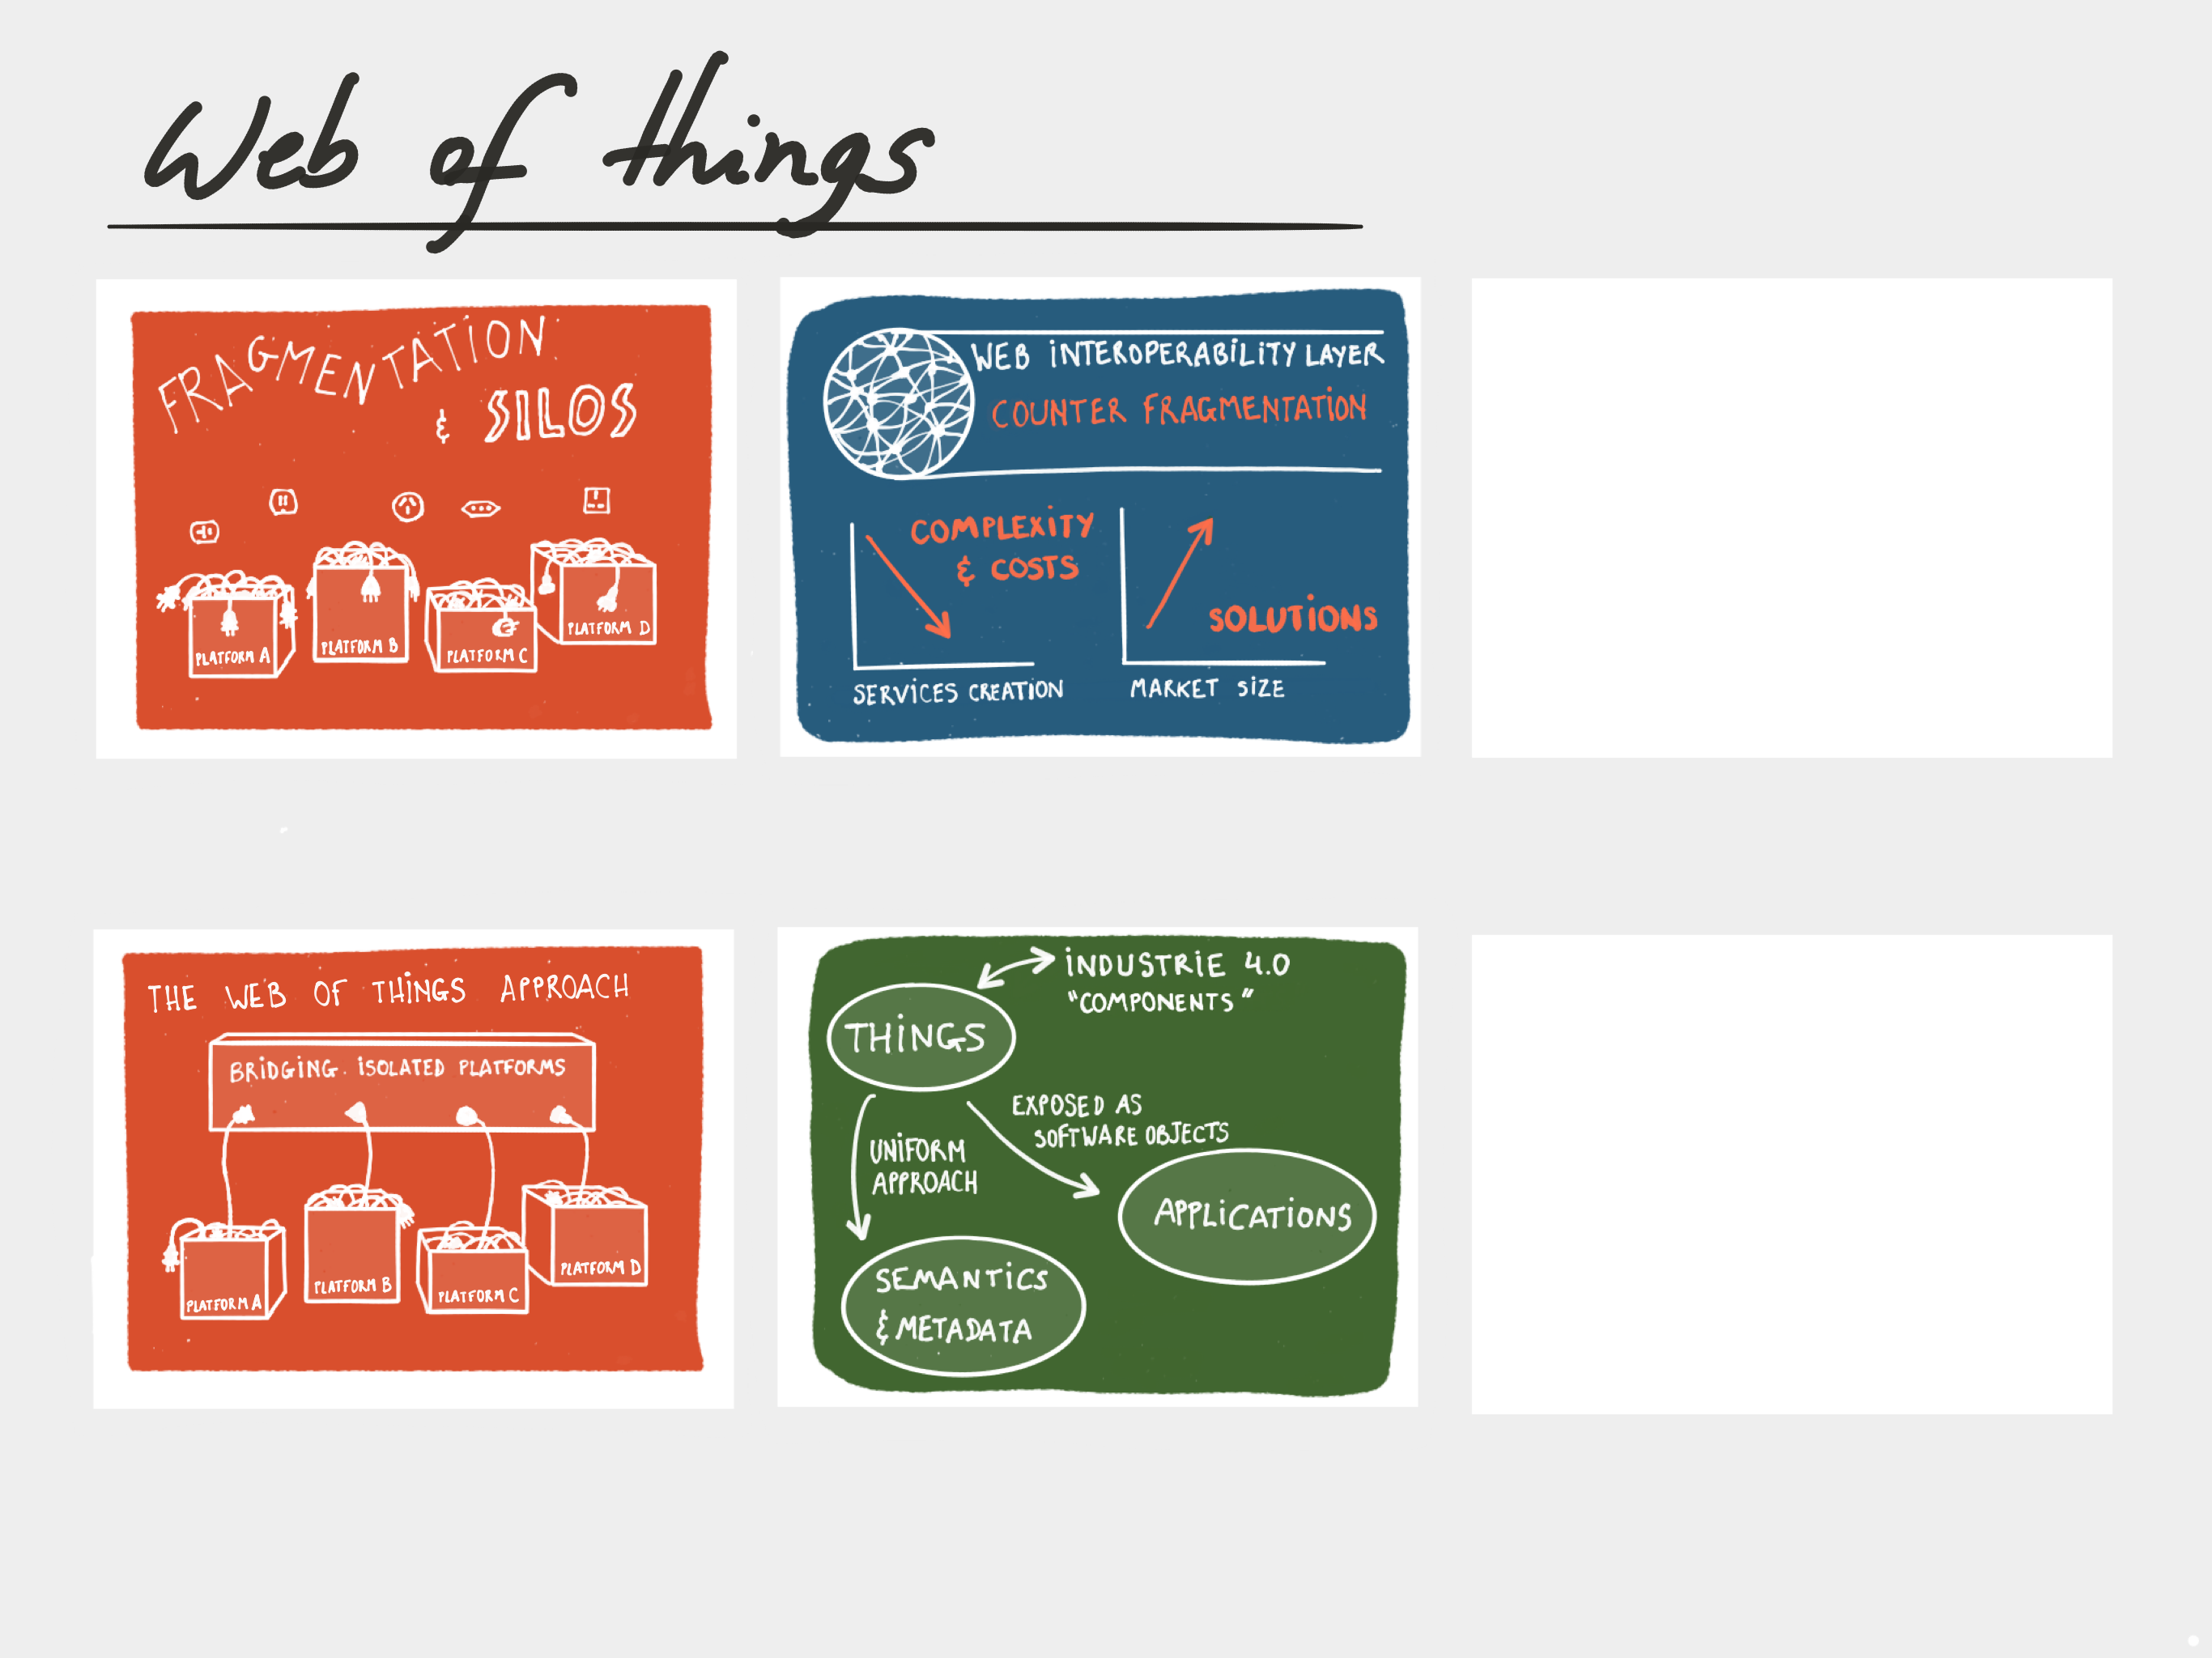 Web of things
FRAGMENTATION
& SILOS
PLATFORM A
PLATFORM B
PLATFORM C
PLATFORM D
WEB INTEROPERABILITY LAYER
COUNTER FRAGMENTATION
COMPLEXITY
& COSTS
SERVICES CREATION
SOLUTIONS
MARKET SIZE
THE WEB OF THINGS APPROACH
BRIDGING ISOLATED PLATFORMS
PLATFORM A
PLATFORM B
PLATFORM C
PLATFORM D
INDUSTRIE 4.0
"COMPONENTS"
THINGS
EXPOSED AS
SOFTWARE OBJECTS
UNIFORM
APPROACH
APPLICATIONS
SEMANTICS
& METADATA